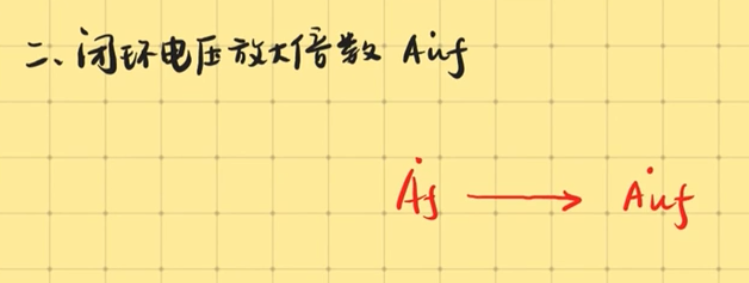 二、闭环电压放大倍数 Auf
Ȧf → Ȧuf